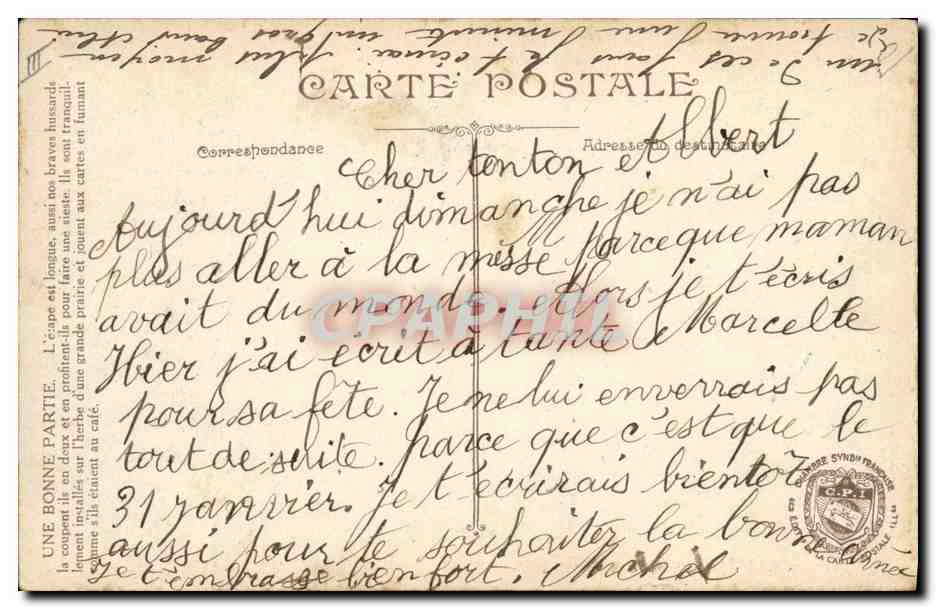 CARTE POSTALE
Correspondance
Adresse du destinataire
Cher tonton et Albert
Aujourd'hui dimanche je n'ai pas
plus aller à la messe parceque maman
avait du monde. Alors je t'écris
Hier j'ai écrit à tante Marcelle
pour sa fête. Je ne lui enverrais pas
tout de suite. parce que c'est que le
31 janvier. Je t'écrirais bientôt
aussi pour te souhaiter la bonne année
Je t'embrasse bien fort. Michel
plus moyen
de trouver d'une minute
UNE BONNE PARTIE. L'étape est longue, aussi nos braves hussards
la coupent ils en deux et en profitent-ils pour faire une sieste. Ils sont tranquil-
lement installés sur l'herbe d'une grande prairie et jouent aux cartes en fumant
comme s'ils étaient au café.
III
CHAMBRE SYNDle FRANÇAISE
C.P.I
CPAPHIL